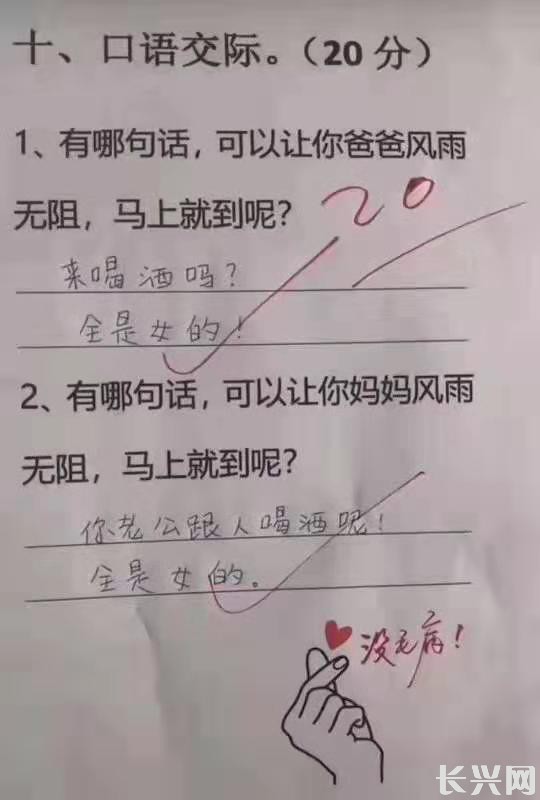 十、口语交际。（20 分）
1、有哪句话，可以让你爸爸风雨
无阻，马上就到呢？
20
来喝酒吗？
全是女的！
2、有哪句话，可以让你妈妈风雨
无阻，马上就到呢？
你老公跟人喝酒呢！
全是女的。
没毛病！
长兴网